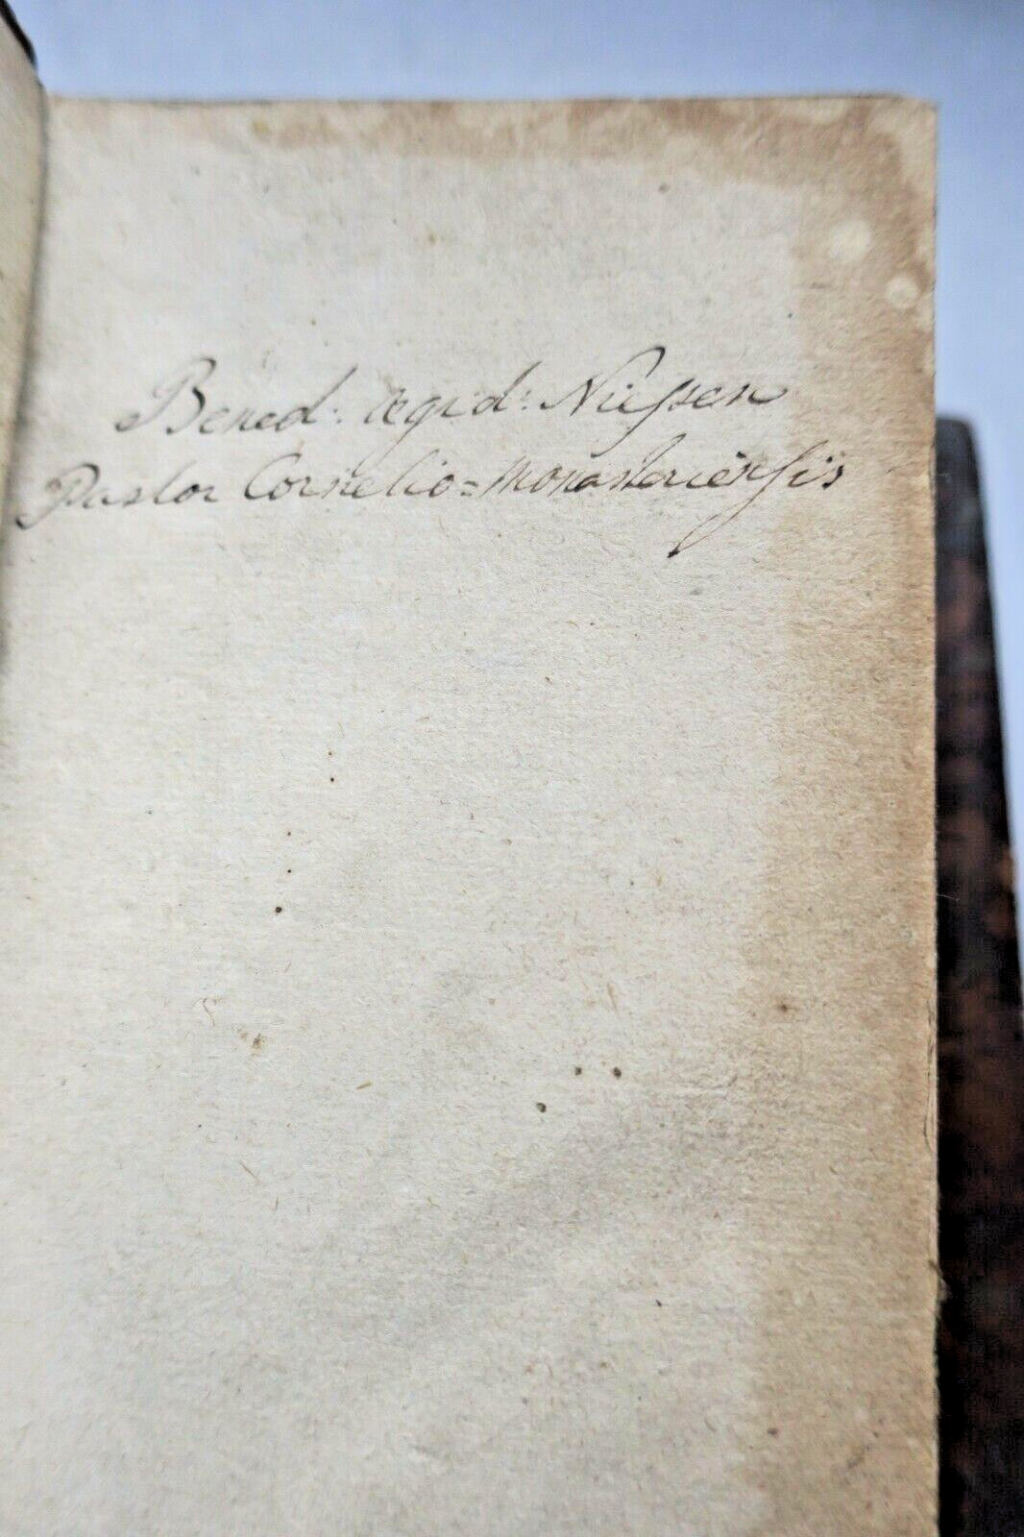 Bened: Aegid: Niessen
Pastor Cornelio=Monasteriensis